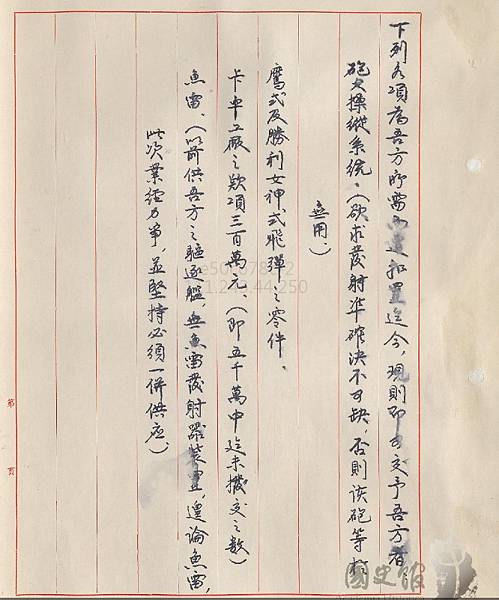 下列各項為吾方所需而遭扣置迄今，現則即可交予吾方者
砲火操縱系統、（欲求發射準確決不可缺，否則該砲等於
無用、）
鷹式及勝利女神式飛彈之零件、
卡車工廠之欵項三百萬元、（即五千萬中迄未撥交之數）
魚雷、（以前供吾方之驅逐艦，無魚雷發射器裝置，遑論魚雷，
此次業經力爭，並堅持必須一併供應）
第 頁
國史館